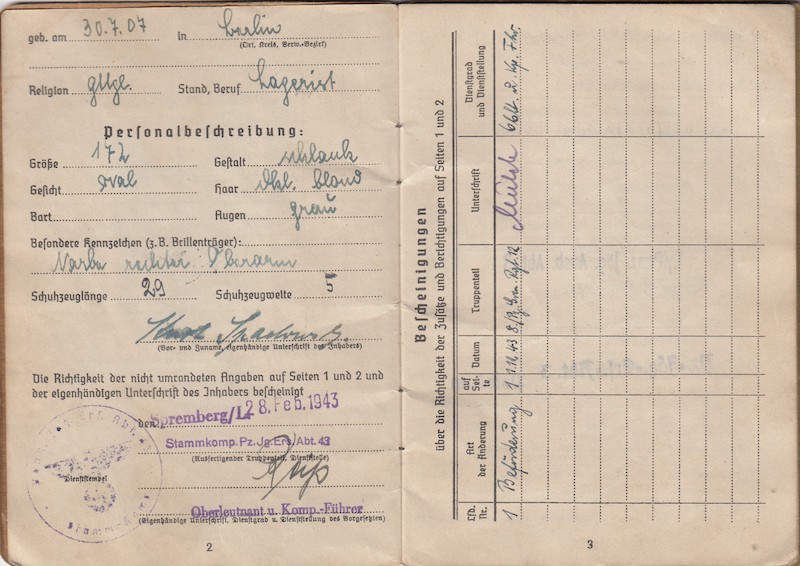 geb. am 30.7.07 in Berlin
(Ort, Kreis, Verw.-Bezirk)
Religion gttgl. Stand, Beruf Lagerist
Personalbeschreibung:
Größe 172 Gestalt schlank
Gesicht oval Haar dkl. blond
Bart Augen grau
Besondere Kennzeichen (z.B. Brillenträger):
Narbe rechter Oberarm
Schuhzeuglänge 29 Schuhzeugweite 5
Kurt
(Vor- und Zuname, eigenhändige Unterschrift des Inhabers)
Die Richtigkeit der nicht umrandeten Angaben auf Seiten 1 und 2 und
der eigenhändigen Unterschrift des Inhabers bescheinigt
den Spremberg/L. 28. Feb. 1943
Stammkomp. Pz. Jg. Ers. Abt. 43
(Ausfertigender Truppenteil, Dienststelle)
Dienststempel
Oberleutnant u. Komp.-Führer
(Eigenhändige Unterschrift, Dienstgrad u. Dienststellung des Vorgesetzten)
2
Bescheinigungen
über die Richtigkeit der Zusätze und Berichtigungen auf Seiten 1 und 2
Lfd. Nr.
Art der Änderung
auf Seite
Datum
Truppenteil
Unterschrift
Dienstgrad und Dienststellung
1 Beförderung 1 1.12.43 8./Pz.Gren.Rgt.12 u. Kp. Fhr.
3